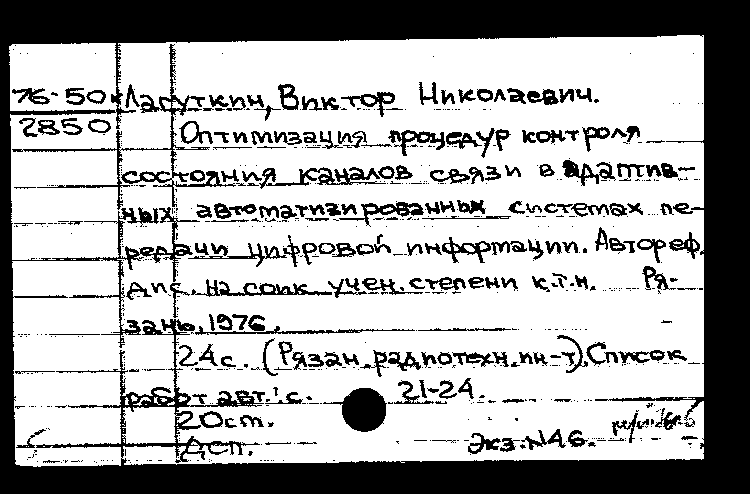 76-50 Лагуткин, Виктор Николаевич.
2850 Оптимизация процедур контроля
состояния каналов связи в адаптив-
ных автоматизированных системах пе-
редачи цифровой информации. Автореф.
дис. на соик. учен. степени к.т.н. Ря-
зань, 1976.
24с. (Рязан. радиотехн. ин-т). Список
работ авт.: с. 21-24.
20ст.
Дсп. Экз. N46.